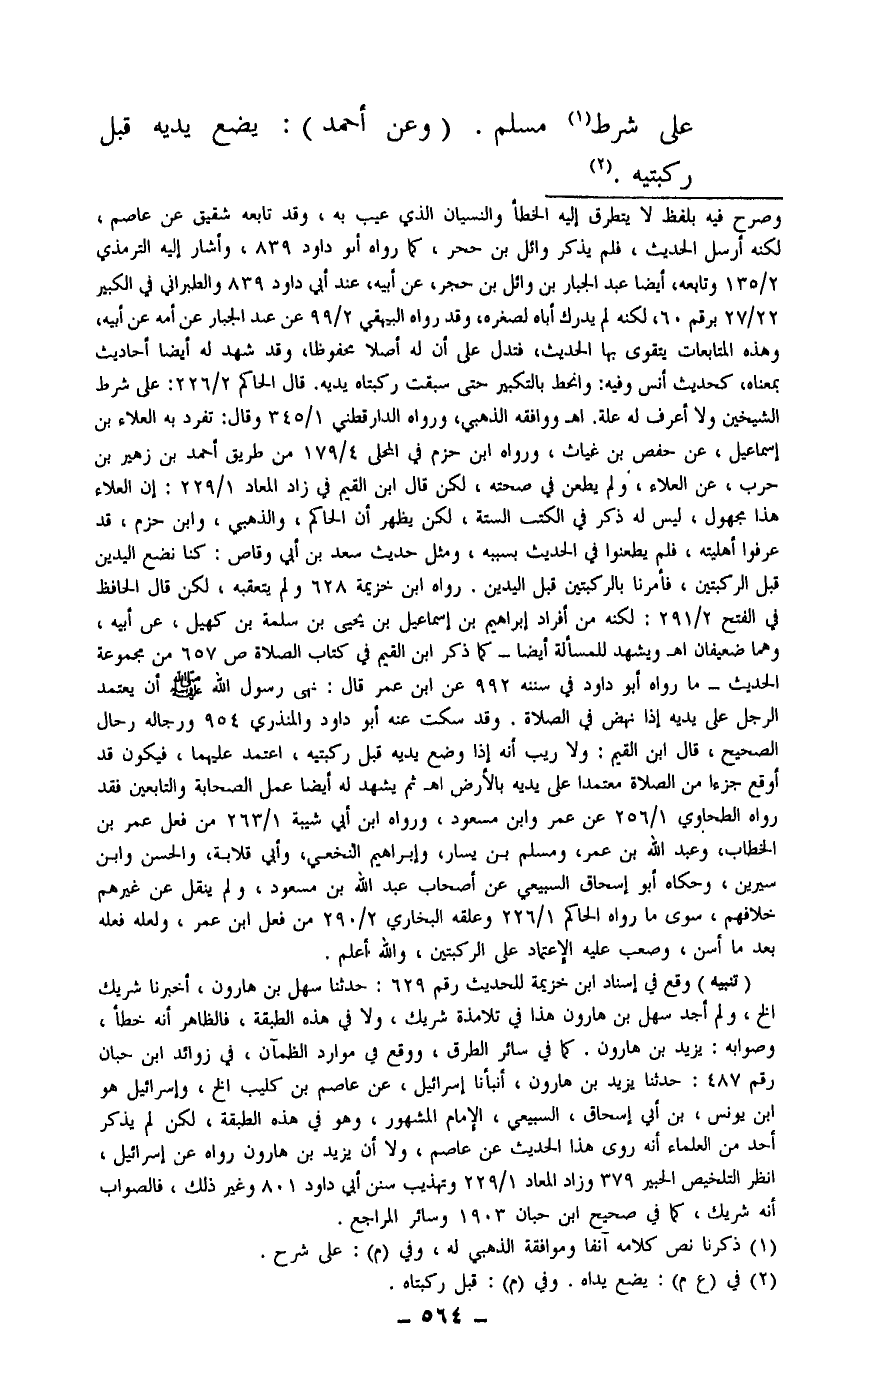 على شرط(١) مسلم . ( وعن أحمد ) : يضع يديه قبل
ركبتيه .(٢)
وصرح فيه بلفظ لا يتطرق إليه الخطأ والنسيان الذي عيب به ، وقد تابعه شقيق عن عاصم ،
لكنه أرسل الحديث ، فلم يذكر وائل بن حجر ، كما رواه أبو داود ٨٣٩ ، وأشار إليه الترمذي
١٣٥/٢ وتابعه، أيضا عبد الجبار بن وائل بن حجر، عن أبيه، عند أبي داود ٨٣٩ والطبراني في الكبير
٢٧/٢٢ برقم ٦٠، لكنه لم يدرك أباه لصغره، وقد رواه البيهقي ٩٩/٢ عن عبد الجبار عن أمه عن أبيه،
وهذه المتابعات يتقوى بها الحديث، فتدل على أن له أصلا محفوظا، وقد شهد له أيضا أحاديث
بمعناه، كحديث أنس وفيه: وانحط بالتكبير حتى سبقت ركبتاه يديه. قال الحاكم ٢٢٦/٢: على شرط
الشيخين ولا أعرف له علة. اهـ ووافقه الذهبي، ورواه الدارقطني ٣٤٥/١ وقال: تفرد به العلاء بن
إسماعيل ، عن حفص بن غياث ، ورواه ابن حزم في المحلى ١٧٩/٤ من طريق أحمد بن زهير بن
حرب ، عن العلاء ، ولم يطعن في صحته ، لكن قال ابن القيم في زاد المعاد ٢٢٩/١ : إن العلاء
هذا مجهول ، ليس له ذكر في الكتب الستة ، لكن يظهر أن الحاكم ، والذهبي ، وابن حزم ، قد
عرفوا أهليته ، فلم يطعنوا في الحديث بسببه ، ومثل حديث سعد بن أبي وقاص : كنا نضع اليدين
قبل الركبتين ، فأمرنا بالركبتين قبل اليدين . رواه ابن خزيمة ٦٢٨ ولم يتعقبه ، لكن قال الحافظ
في الفتح ٢٩١/٢ : لكنه من أفراد إبراهيم بن إسماعيل بن يحيى بن سلمة بن كهيل ، عن أبيه ،
وهما ضعيفان اهـ ويشهد للمسألة أيضا – كما ذكر ابن القيم في كتاب الصلاة ص ٦٥٧ من مجموعة
الحديث – ما رواه أبو داود في سننه ٩٩٢ عن ابن عمر قال : نهى رسول الله ﷺ أن يعتمد
الرجل على يديه إذا نهض في الصلاة . وقد سكت عنه أبو داود والمنذري ٩٥٤ ورجاله رجال
الصحيح ، قال ابن القيم : ولا ريب أنه إذا وضع يديه قبل ركبتيه ، اعتمد عليهما ، فيكون قد
أوقع جزءا من الصلاة معتمدا على يديه بالأرض اهـ ثم يشهد له أيضا عمل الصحابة والتابعين فقد
رواه الطحاوي ٢٥٦/١ عن عمر وابن مسعود ، ورواه ابن أبي شيبة ٢٦٣/١ من فعل عمر بن
الخطاب، وعبد الله بن عمر، ومسلم بن يسار، وإبراهيم النخعي، وأبي قلابة، والحسن وابن
سيرين ، وحكاه أبو إسحاق السبيعي عن أصحاب عبد الله بن مسعود ، ولم ينقل عن غيرهم
خلافهم ، سوى ما رواه الحاكم ٢٢٦/١ وعلقه البخاري ٢٩٠/٢ من فعل ابن عمر ، ولعله فعله
بعد ما أسن ، وصعب عليه الإعتماد على الركبتين ، والله أعلم .
( تنبيه ) وقع في إسناد ابن خزيمة للحديث رقم ٦٢٩ : حدثنا سهل بن هارون ، أخبرنا شريك
الخ ، ولم أجد سهل بن هارون هذا في تلامذة شريك ، ولا في هذه الطبقة ، فالظاهر أنه خطأ ،
وصوابه : يزيد بن هارون . كما في سائر الطرق ، ووقع في موارد الظمآن ، في زوائد ابن حبان
رقم ٤٨٧ : حدثنا يزيد بن هارون ، أنبأنا إسرائيل ، عن عاصم بن كليب الخ ، وإسرائيل هو
ابن يونس ، بن أبي إسحاق ، السبيعي ، الإمام المشهور ، وهو في هذه الطبقة ، لكن لم يذكر
أحد من العلماء أنه روى هذا الحديث عن عاصم ، ولا أن يزيد بن هارون رواه عن إسرائيل ،
انظر التلخيص الحبير ٣٧٩ وزاد المعاد ٢٢٩/١ وتهذيب سنن أبي داود ٨٠١ وغير ذلك ، فالصواب
أنه شريك ، كما في صحيح ابن حبان ١٩٠٣ وسائر المراجع .
(١) ذكرنا نص كلامه آنفا وموافقة الذهبي له ، وفي (م) : على شرح .
(٢) في (ع م) : يضع يداه . وفي (م) : قبل ركبتاه .
– ٥٦٤ –